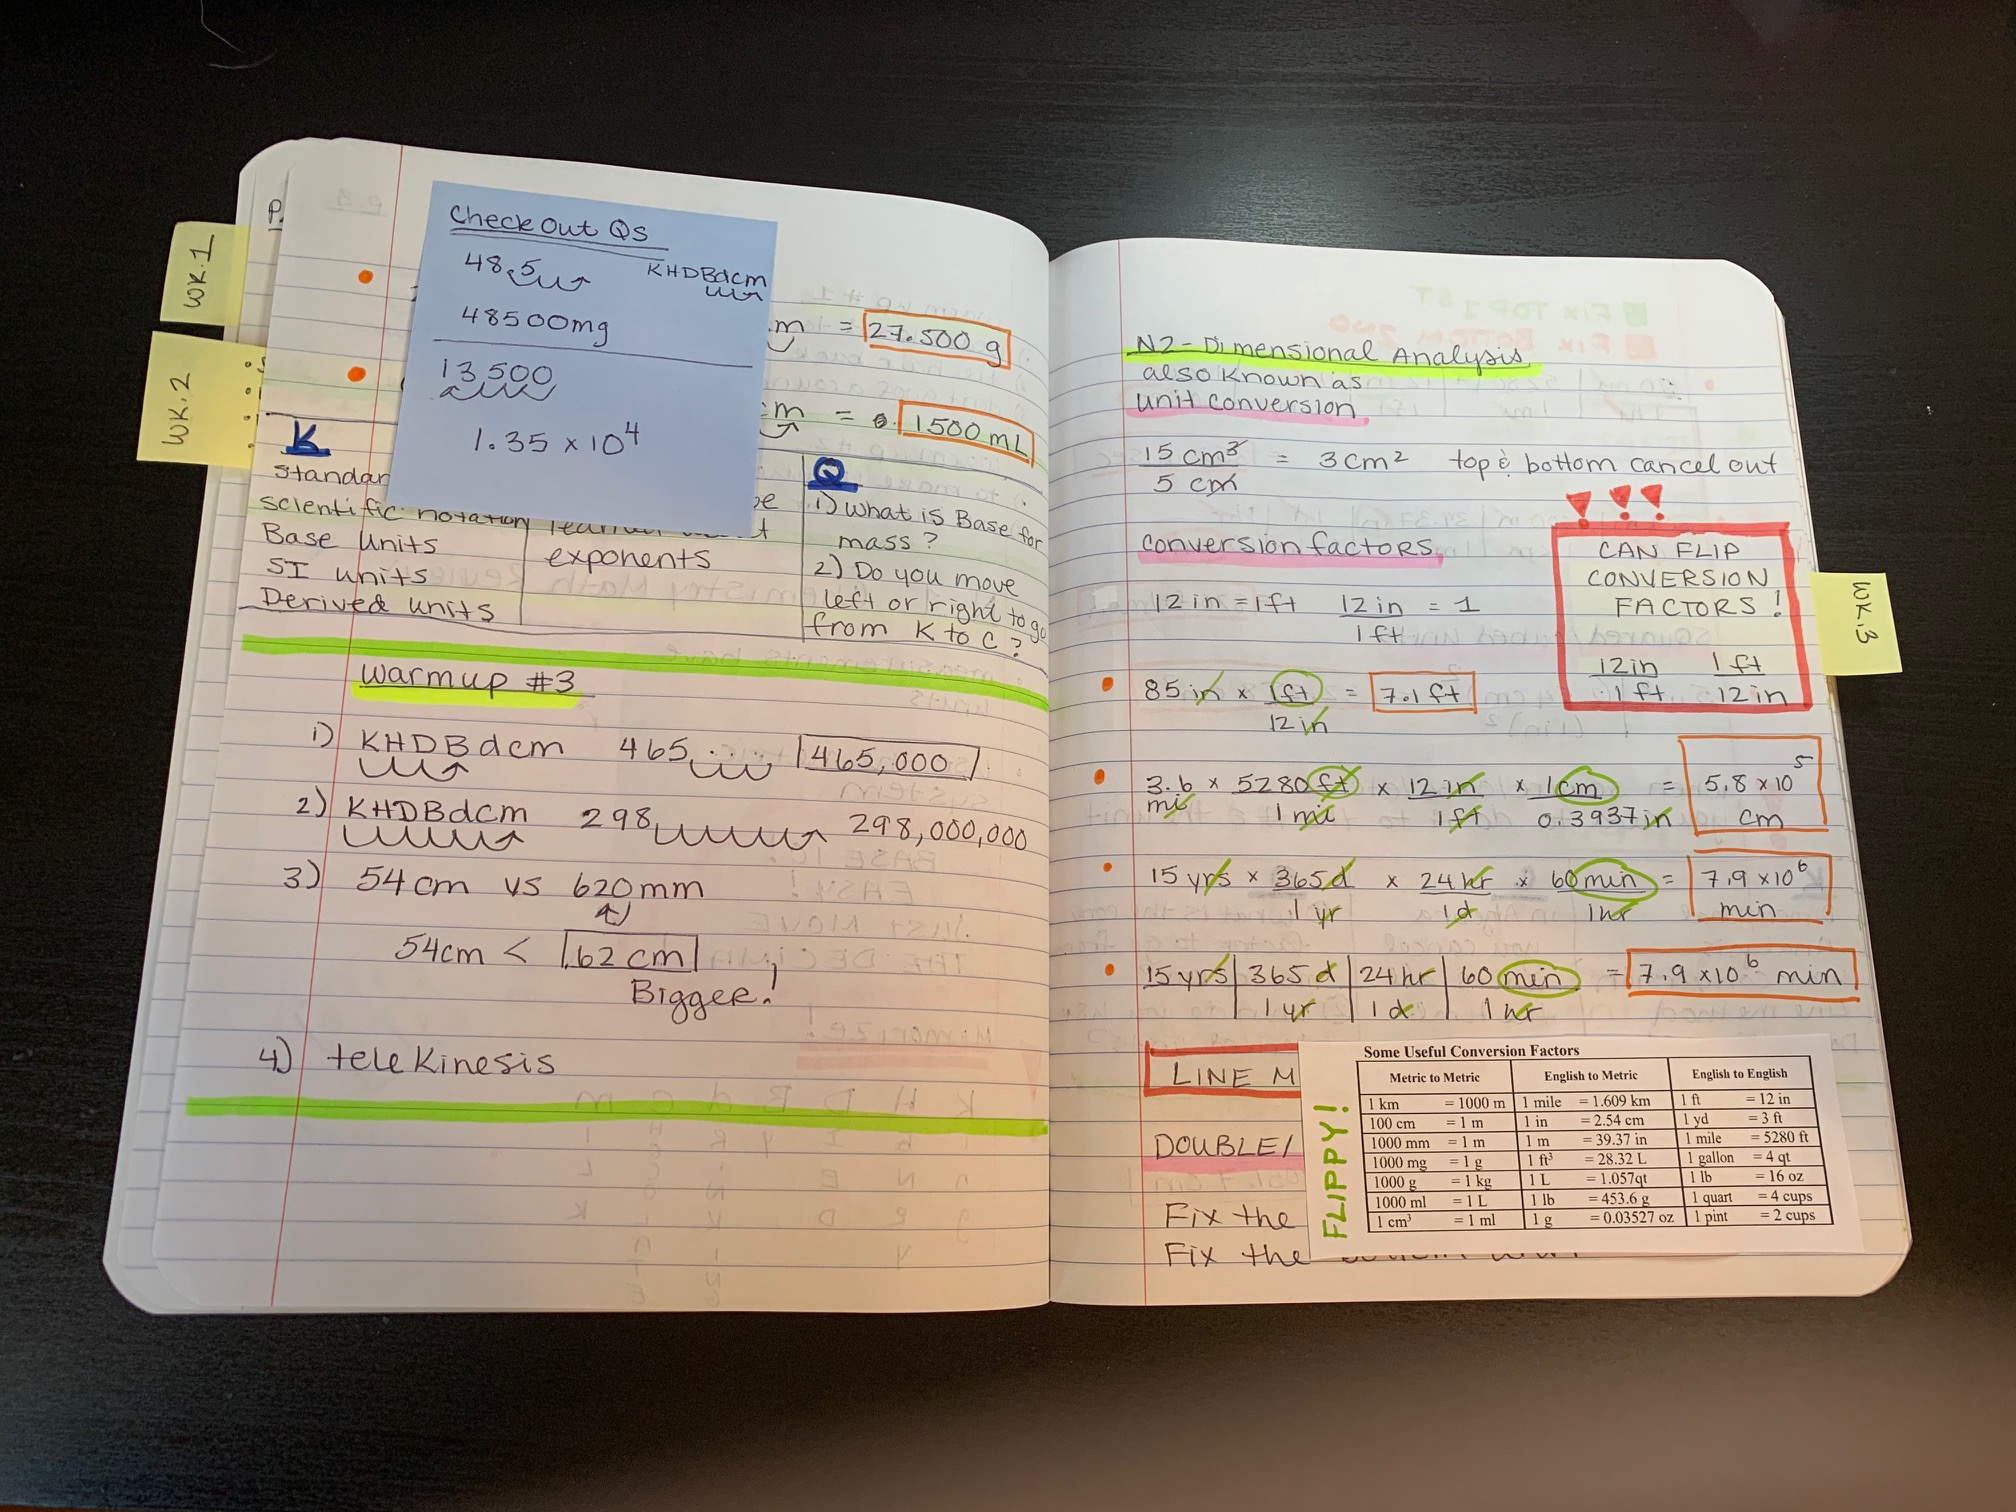 WK.1
WK.2
P.
Check Out Qs
48.5
KHDBdcm
48500mg
13,500
1.35 x 10⁴
m = 27.500 g
m = 1500 mL
K
Standar
scientific notation
Base Units
SI units
Derived units
exponents
Q
1) What is Base for
mass?
2) Do you move
left or right to go
from K to C?
Warmup #3
1) KHDBdcm 465 465,000
2) KHDBdcm 298 298,000,000
3) 54 cm vs 620 mm
54cm < 62 cm
Bigger!
4) telekinesis
N2-Dimensional Analysis
also known as
unit conversion
15 cm³ = 3cm² top & bottom cancel out
5 cm
conversion factors
12 in = 1ft 12 in = 1
1 ft
CAN FLIP
CONVERSION
FACTORS!
12in 1 ft
1 ft 12 in
WK.3
85 in x 1ft = 7.1 ft
12 in
3.6 x 5280 ft x 12 in x 1 cm = 5.8 x 10⁵
mi 1 mi 1 ft 0.3937 in cm
15 yrs x 365d x 24 hr x 60 min = 7.9 x 10⁶
1 yr 1d 1hr min
15 yrs 365 d 24 hr 60 min = 7.9 x10⁶ min
1 yr 1 d 1 hr
LINE M
DOUBLE/
Fix the
Fix the
FLIPPY!
Some Useful Conversion Factors
Metric to Metric English to Metric English to English
1 km = 1000 m 1 mile = 1.609 km 1 ft = 12 in
100 cm = 1 m 1 in = 2.54 cm 1 yd = 3 ft
1000 mm = 1 m 1 m = 39.37 in 1 mile = 5280 ft
1000 mg = 1 g 1 ft³ = 28.32 L 1 gallon = 4 qt
1000 g = 1 kg 1 L = 1.057qt 1 lb = 16 oz
1000 ml = 1 L 1 lb = 453.6 g 1 quart = 4 cups
1 cm³ = 1 ml 1 g = 0.03527 oz 1 pint = 2 cups